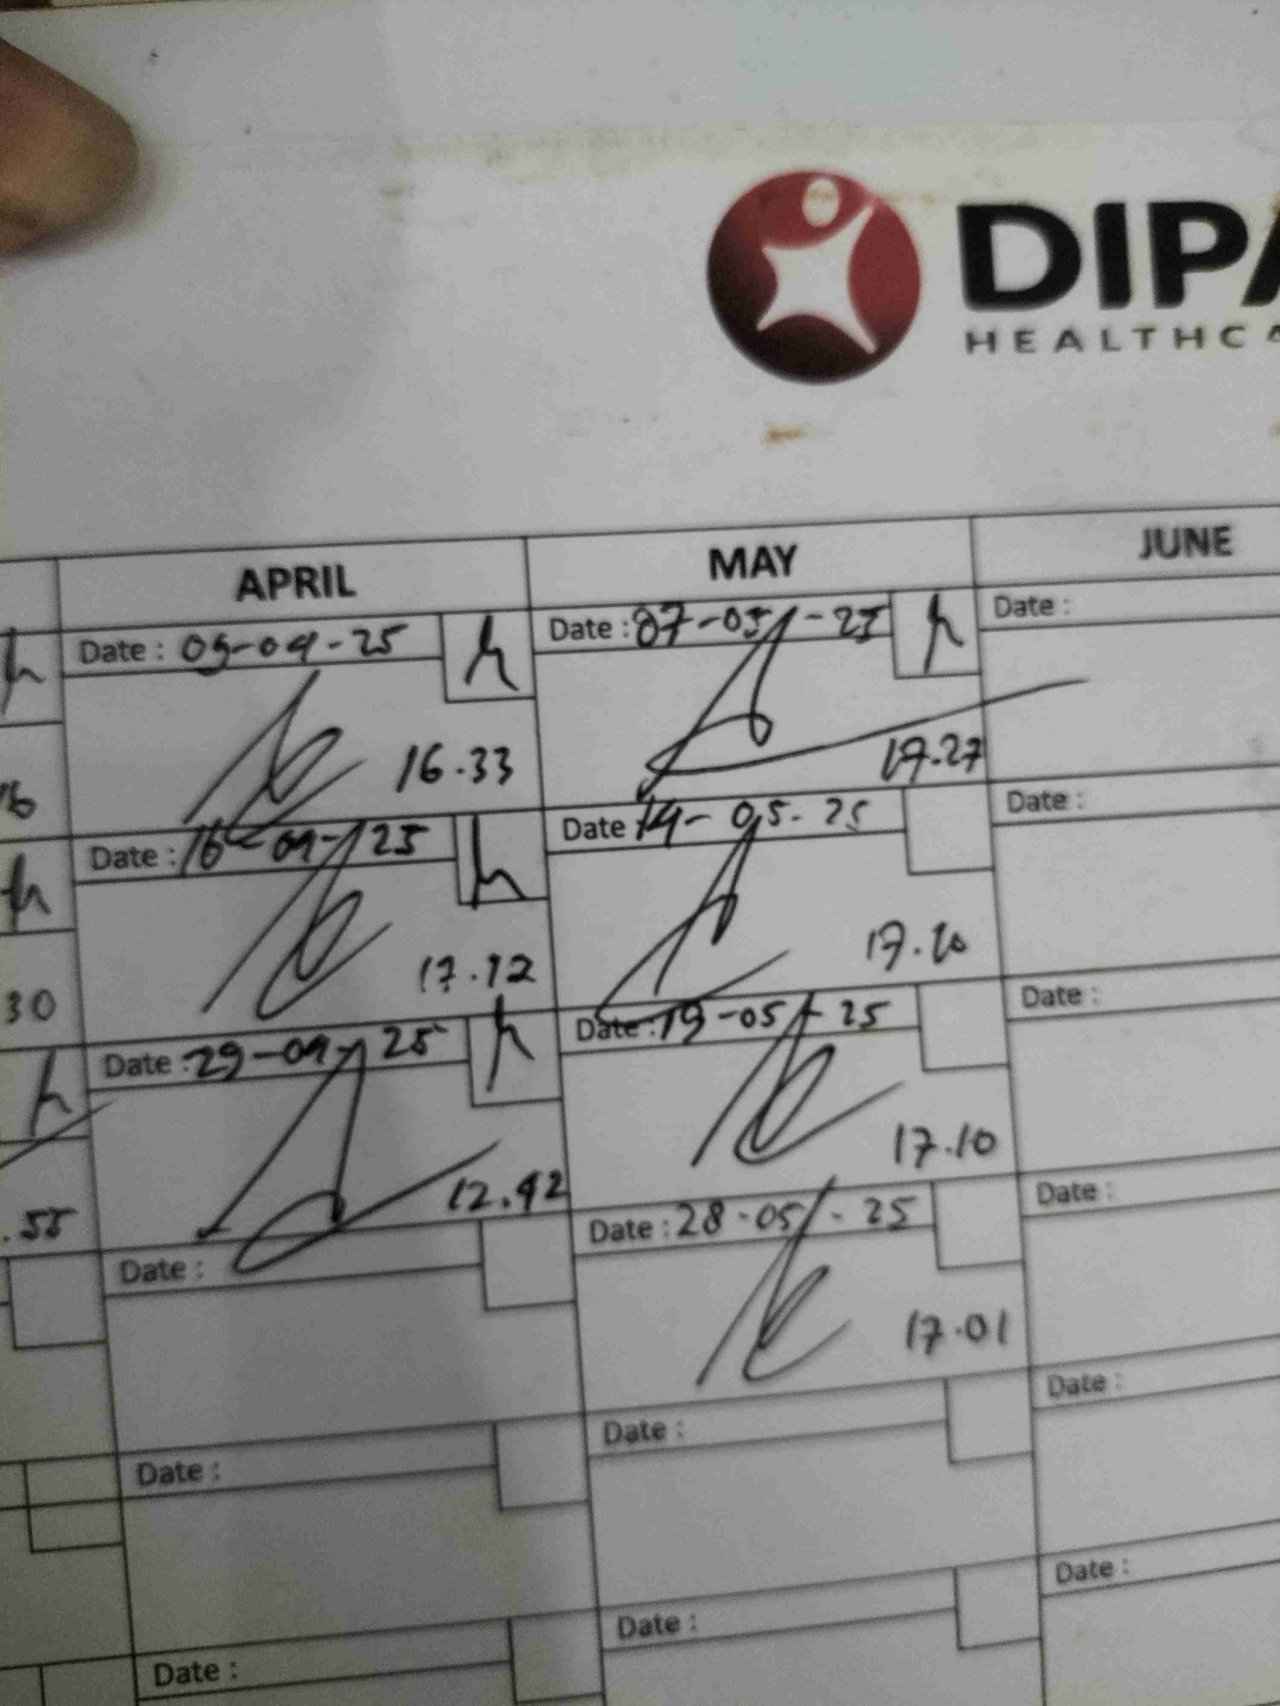 DIPA
HEALTHCA
APRIL MAY JUNE
Date : 09-04-25 Date : 07-05-25 Date :
16.33 17.27
Date : 16-04-25 Date 14-05-25 Date :
17.12 17.10
30
Date : 29-04-25 Date : 19-05-25 Date :
12.42 17.10
.55
Date : Date : 28-05-25 Date :
17.01
Date : Date : Date :
Date : Date : Date :